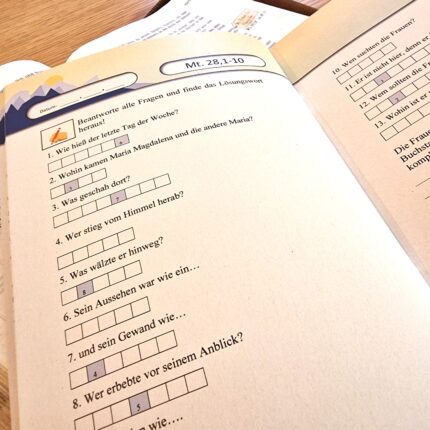 Datum:
Mt. 28,1-10
Beantworte alle Fragen und finde das Lösungswort
heraus!
1. Wie hieß der letzte Tag der Woche?
2. Wohin kamen Maria Magdalena und die andere Maria?
3. Was geschah dort?
4. Wer stieg vom Himmel herab?
5. Was wälzte er hinweg?
8
6. Sein Aussehen war wie ein…
7. und sein Gewand wie…
4
8. Wer erbebte vor seinem Anblick?
5
wie….
10. Wen suchten die Frauen?
11. Er ist nicht hier, denn er
12. Wem sollten die
13. Wohin ist er
Die Frauen